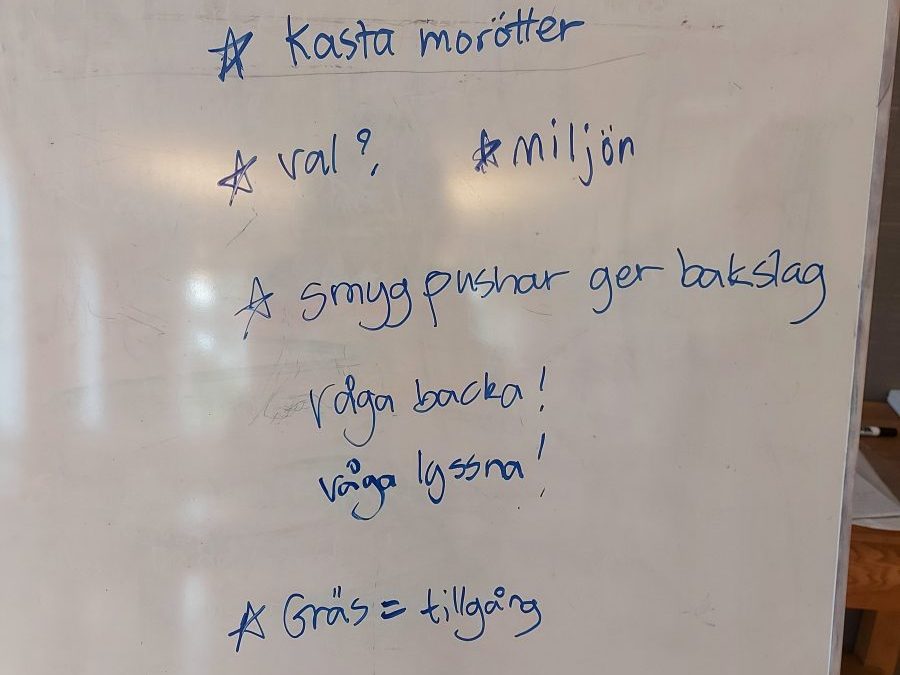 ☆ Kasta morötter
☆ val? ☆ miljön
☆ smygpushar ger bakslag
våga backa!
våga lyssna!
☆ Gräs = tillgång